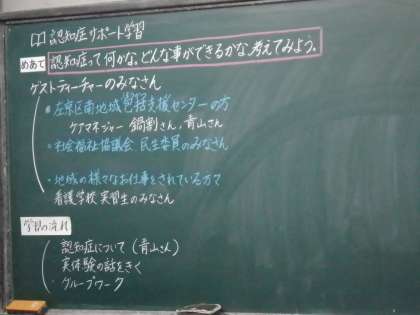 認知症サポート学習
めあて 認知症って何かな。どんな事ができるかな、考えてみよう。
ゲストティーチャーのみなさん
・左京区南地域包括支援センターの方
ケアマネジャー 鍋割さん、青山さん
・社会福祉協議会 民生委員のみなさん
・地域の様々なお仕事をされている方々
看護学校 実習生のみなさん
学習の流れ
・認知症について(青山さん)
・実体験の話をきく
・グループワーク